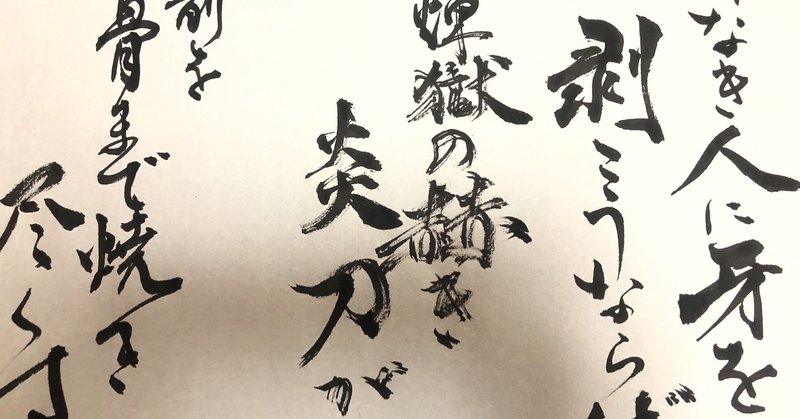 なき人に牙を
剥こうならば
煉獄の赫き
炎刀が
前を
骨まで焼き
尽くす